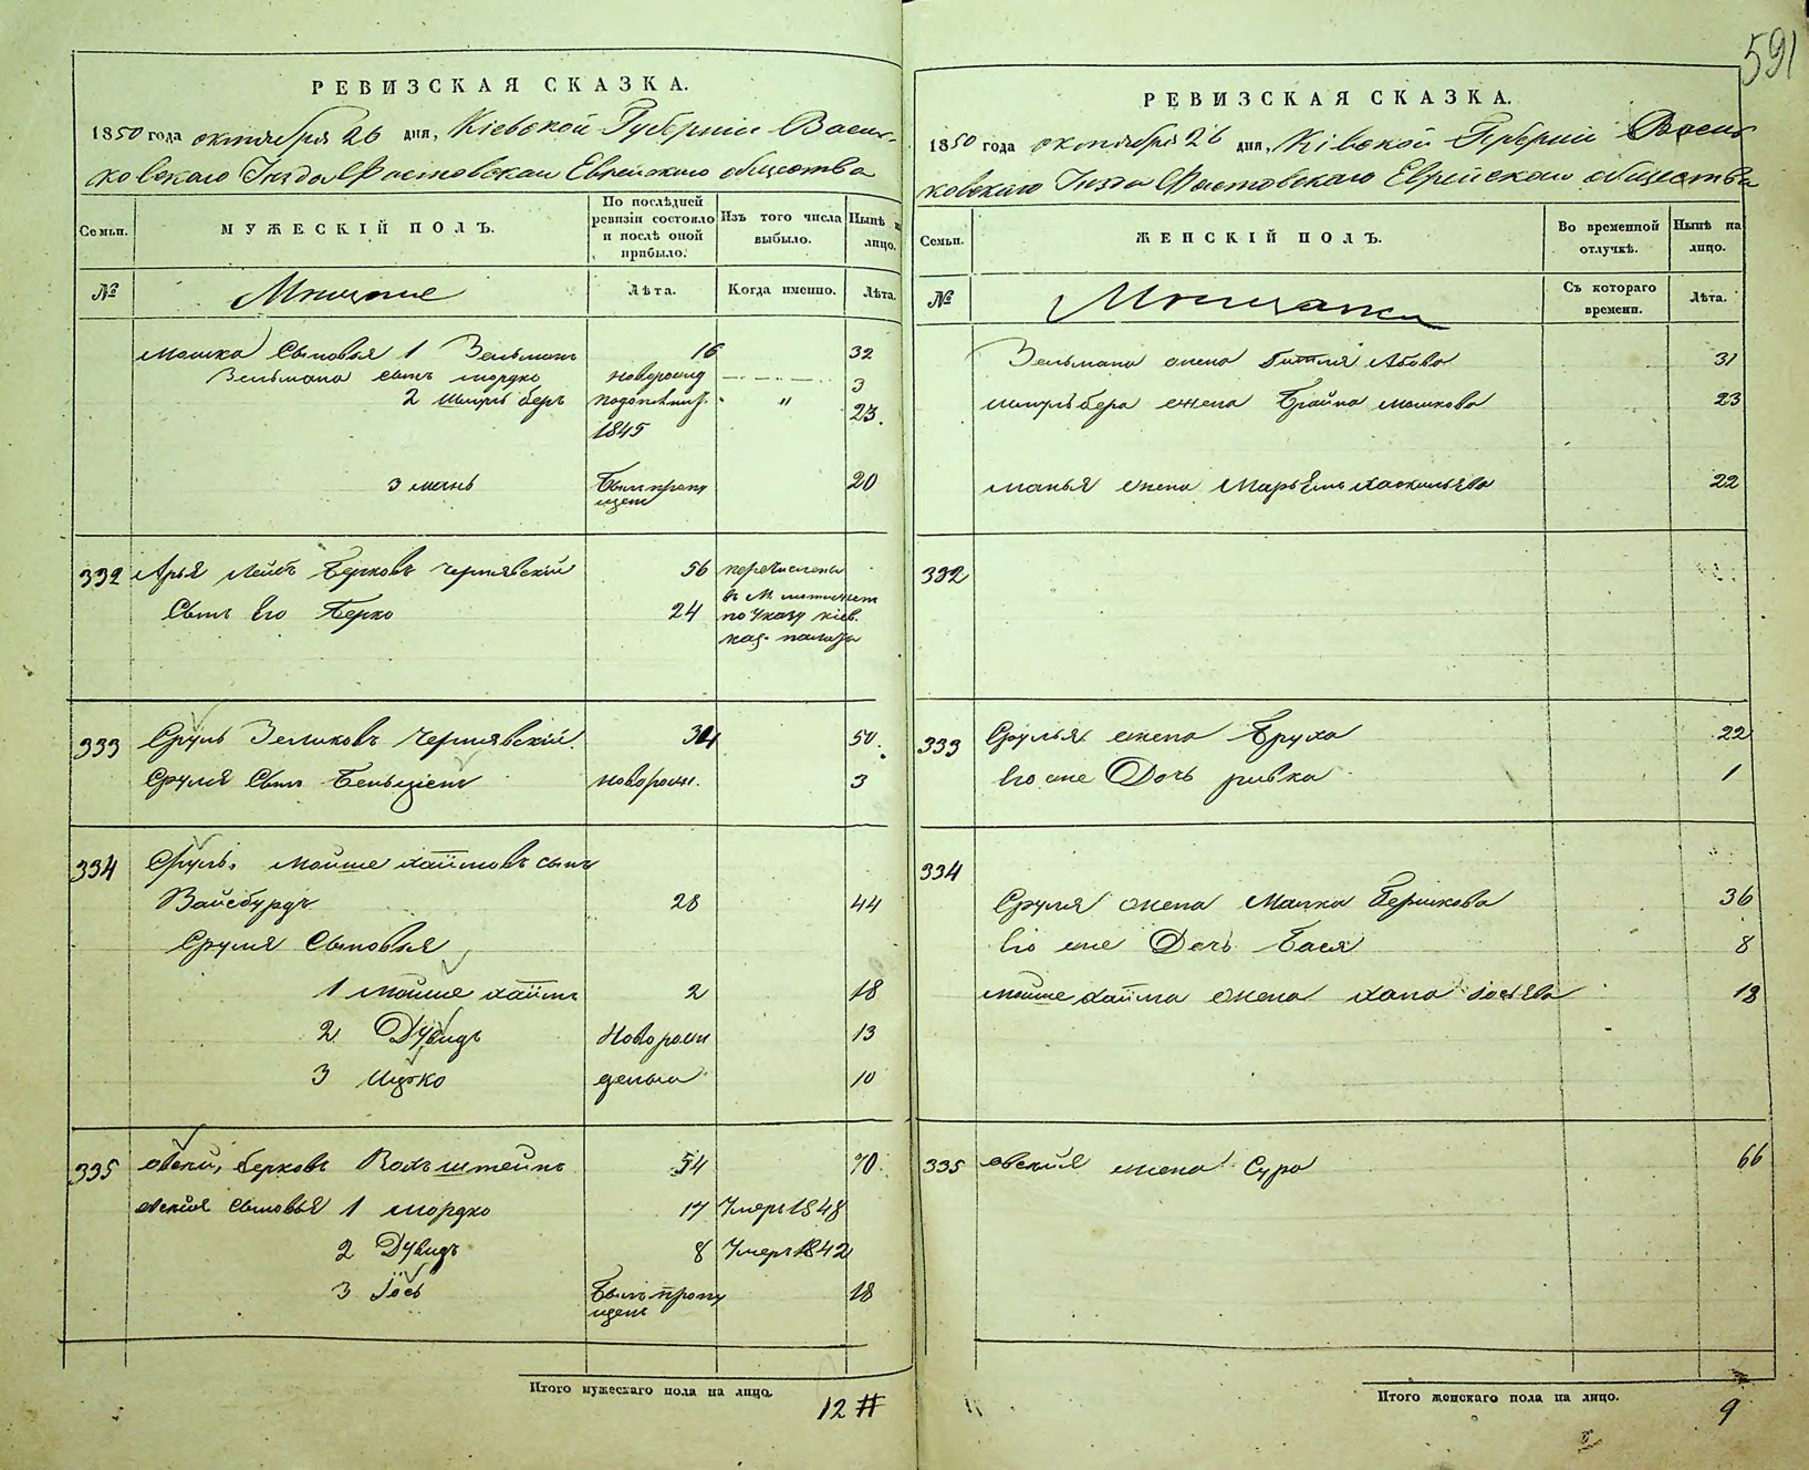 591
РЕВИЗСКАЯ СКАЗКА.
1850 года октября 26 дня, Кіевской Губерніи Василь-
ковскаго Уезда Фастовскаго Еврейскаго общества
Семьи.
МУЖЕСКІЙ ПОЛЪ.
По послѣдней ревизіи состояло и послѣ оной прибыло.
Изъ того числа выбыло.
Нынѣ на лицо.
№
Мещане
Лѣта.
Когда именно.
Лѣта.
Мошка Сыновья 1 Зельманъ 16 32
Зельмана сынъ Мордко новорожд 3
2 Шмуль беръ 23.
1845
3 Мань Былъ пропущенъ 20
332 Арья Лейбъ Берковъ Чернявскій 56 перечислены
въ М.
Сынъ Его Берко 24 по Указу кіев.
каз. палаты
333 Сруль Зельковъ Чернявскій. 34 50.
Сруля Сынъ Беньціенъ новорож. 3
334 Сруль, Мойше Хаимовъ сынъ
Вайсбурдъ 28 44
Сруля Сыновья
1 Мойше Хаимъ 2 18
2 Дувидъ Новорож 13
3 Ицко денны 10
335 Овсей, Берковъ Вольштейнъ 54 70.
Овсия Сыновья 1 Мордко 17 Умеръ 1848
2 Дувидъ 8 Умеръ 1842
3 Іосъ Былъ пропущенъ 18
Итого мужескаго пола на лицо.
12
РЕВИЗСКАЯ СКАЗКА.
1850 года октября 26 дня, Кіевской Губерніи Василь
ковскаго Уезда Фастовскаго Еврейскаго общества
Семьи.
ЖЕНСКІЙ ПОЛЪ.
Во временной отлучкѣ.
Нынѣ на лицо.
№
Мещанки
Съ котораго времени.
Лѣта.
Зельмана жена 31
Шмуль бера жена Брайна Мошкова 23
Манья жена 22
332
333 Срулья жена Бруха 22
Его же Дочь Ривка 1
334
Сруля жена Малка Бершкова 36
Его же Дочь Бася 8
Мойше Хаима жена Хана 18
335 Овсия жена Сура 66
Итого женскаго пола на лицо.
9